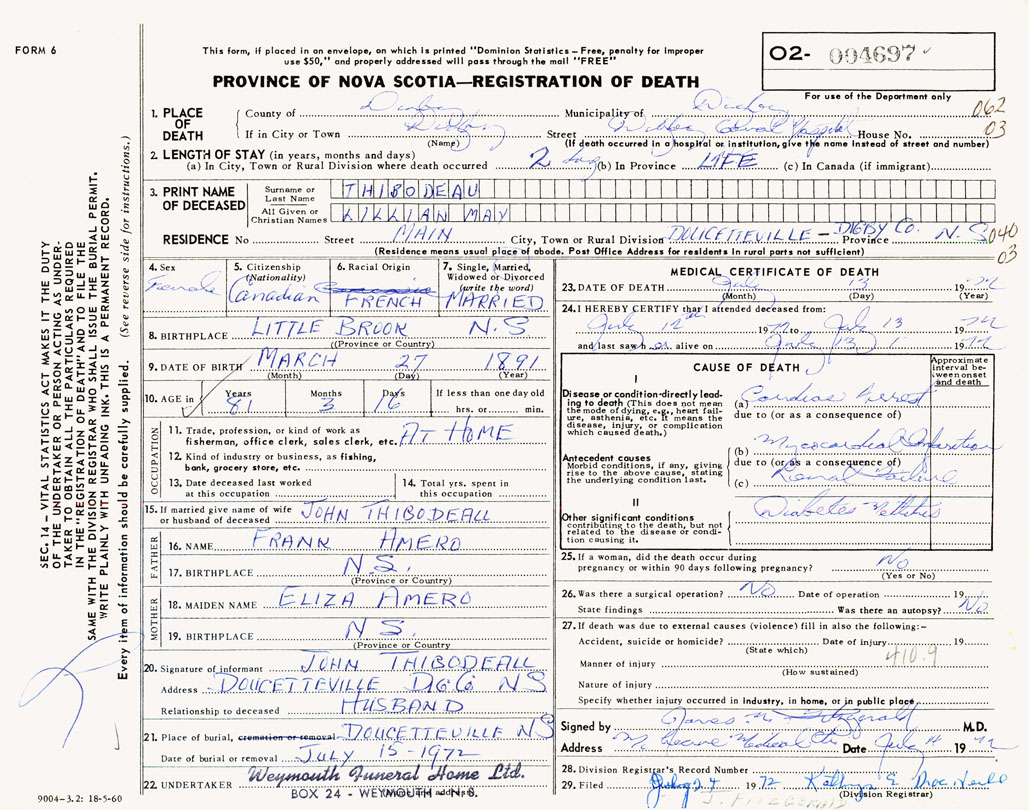 FORM 6
This form, if placed in an envelope, on which is printed "Dominion Statistics – Free, penalty for improper
use $50," and properly addressed will pass through the mail "FREE"
O2- 004697
PROVINCE OF NOVA SCOTIA—REGISTRATION OF DEATH
For use of the Department only
062
03
1. PLACE OF DEATH
County of Digby Municipality of Digby
If in City or Town Digby Street Digby General Hospital House No.
(Name) (If death occurred in a hospital or institution, give the name instead of street and number)
2. LENGTH OF STAY (in years, months and days)
(a) In City, Town or Rural Division where death occurred 2 days (b) In Province LIFE (c) In Canada (if immigrant)
3. PRINT NAME OF DECEASED
Surname or Last Name THIBODEAU
All Given or Christian Names LILLIAN MAY
RESIDENCE No Street MAIN City, Town or Rural Division DOUCETTEVILLE – DIGBY CO. Province N.S 040
03
(Residence means usual place of abode. Post Office Address for residents in rural parts not sufficient)
4. Sex Female
5. Citizenship (Nationality) Canadian
6. Racial Origin FRENCH
7. Single, Married, Widowed or Divorced (write the word) MARRIED
8. BIRTHPLACE LITTLE BROOK N.S
(Province or Country)
9. DATE OF BIRTH MARCH 27 1891
(Month) (Day) (Year)
10. AGE in Years 81 Months 3 Days 16 If less than one day old
hrs. or min.
OCCUPATION
11. Trade, profession, or kind of work as
fisherman, office clerk, sales clerk, etc. AT HOME
12. Kind of industry or business, as fishing,
bank, grocery store, etc.
13. Date deceased last worked
at this occupation
14. Total yrs. spent in
this occupation
15. If married give name of wife
or husband of deceased JOHN THIBODEAU
FATHER
16. NAME FRANK AMERO
17. BIRTHPLACE N.S.
(Province or Country)
MOTHER
18. MAIDEN NAME ELIZA AMERO
19. BIRTHPLACE N S.
(Province or Country)
20. Signature of informant JOHN THIBODEAU
Address DOUCETTEVILLE DIG CO NS
Relationship to deceased HUSBAND
21. Place of burial, cremation or removal DOUCETTEVILLE NS
Date of burial or removal JULY 15-1972
22. UNDERTAKER Weymouth Funeral Home Ltd.
BOX 24 - WEYMOUTH - N.S.
9004–3.2: 18-5-60
MEDICAL CERTIFICATE OF DEATH
23. DATE OF DEATH July 13 1972
(Month) (Day) (Year)
24. I HEREBY CERTIFY that I attended deceased from:
July 12th 1972 to July 13 1972
and last saw h er alive on July 13 1972
CAUSE OF DEATH
Approximate interval between onset and death
I
Disease or condition directly leading to death (This does not mean the mode of dying, e.g., heart failure, asthenia, etc. It means the disease, injury, or complication which caused death.)
(a) Cardiac Arrest
due to (or as a consequence of)
Antecedent causes
Morbid conditions, if any, giving rise to the above cause, stating the underlying condition last.
(b) Myocardial Infarction
due to (or as a consequence of)
(c) Renal Failure
II
Other significant conditions
contributing to the death, but not related to the disease or condition causing it.
Diabetes Mellitus
25. If a woman, did the death occur during
pregnancy or within 90 days following pregnancy? No
(Yes or No)
26. Was there a surgical operation? No Date of operation 19
State findings Was there an autopsy? No
27. If death was due to external causes (violence) fill in also the following:–
Accident, suicide or homicide? Date of injury 19
(State which)
410.9
Manner of injury
(How sustained)
Nature of injury
Specify whether injury occurred in industry, in home, or in public place
Signed by James M. Fitzgerald M.D.
Address Medical Ctr Date July 1972
28. Division Registrar's Record Number
29. Filed July 24 1972 Kathryn E.
(Division Registrar)
J. FITZGERALD
SEC. 14 – VITAL STATISTICS ACT MAKES IT THE DUTY
OF THE UNDERTAKER OR PERSON ACTING AS UNDER-
TAKER TO OBTAIN ALL THE PARTICULARS REQUIRED
IN THE "REGISTRATION OF DEATH" AND TO FILE THE
SAME WITH THE DIVISION REGISTRAR WHO SHALL ISSUE THE BURIAL PERMIT.
WRITE PLAINLY WITH UNFADING INK. THIS IS A PERMANENT RECORD.
Every item of information should be carefully supplied. (See reverse side for instructions.)